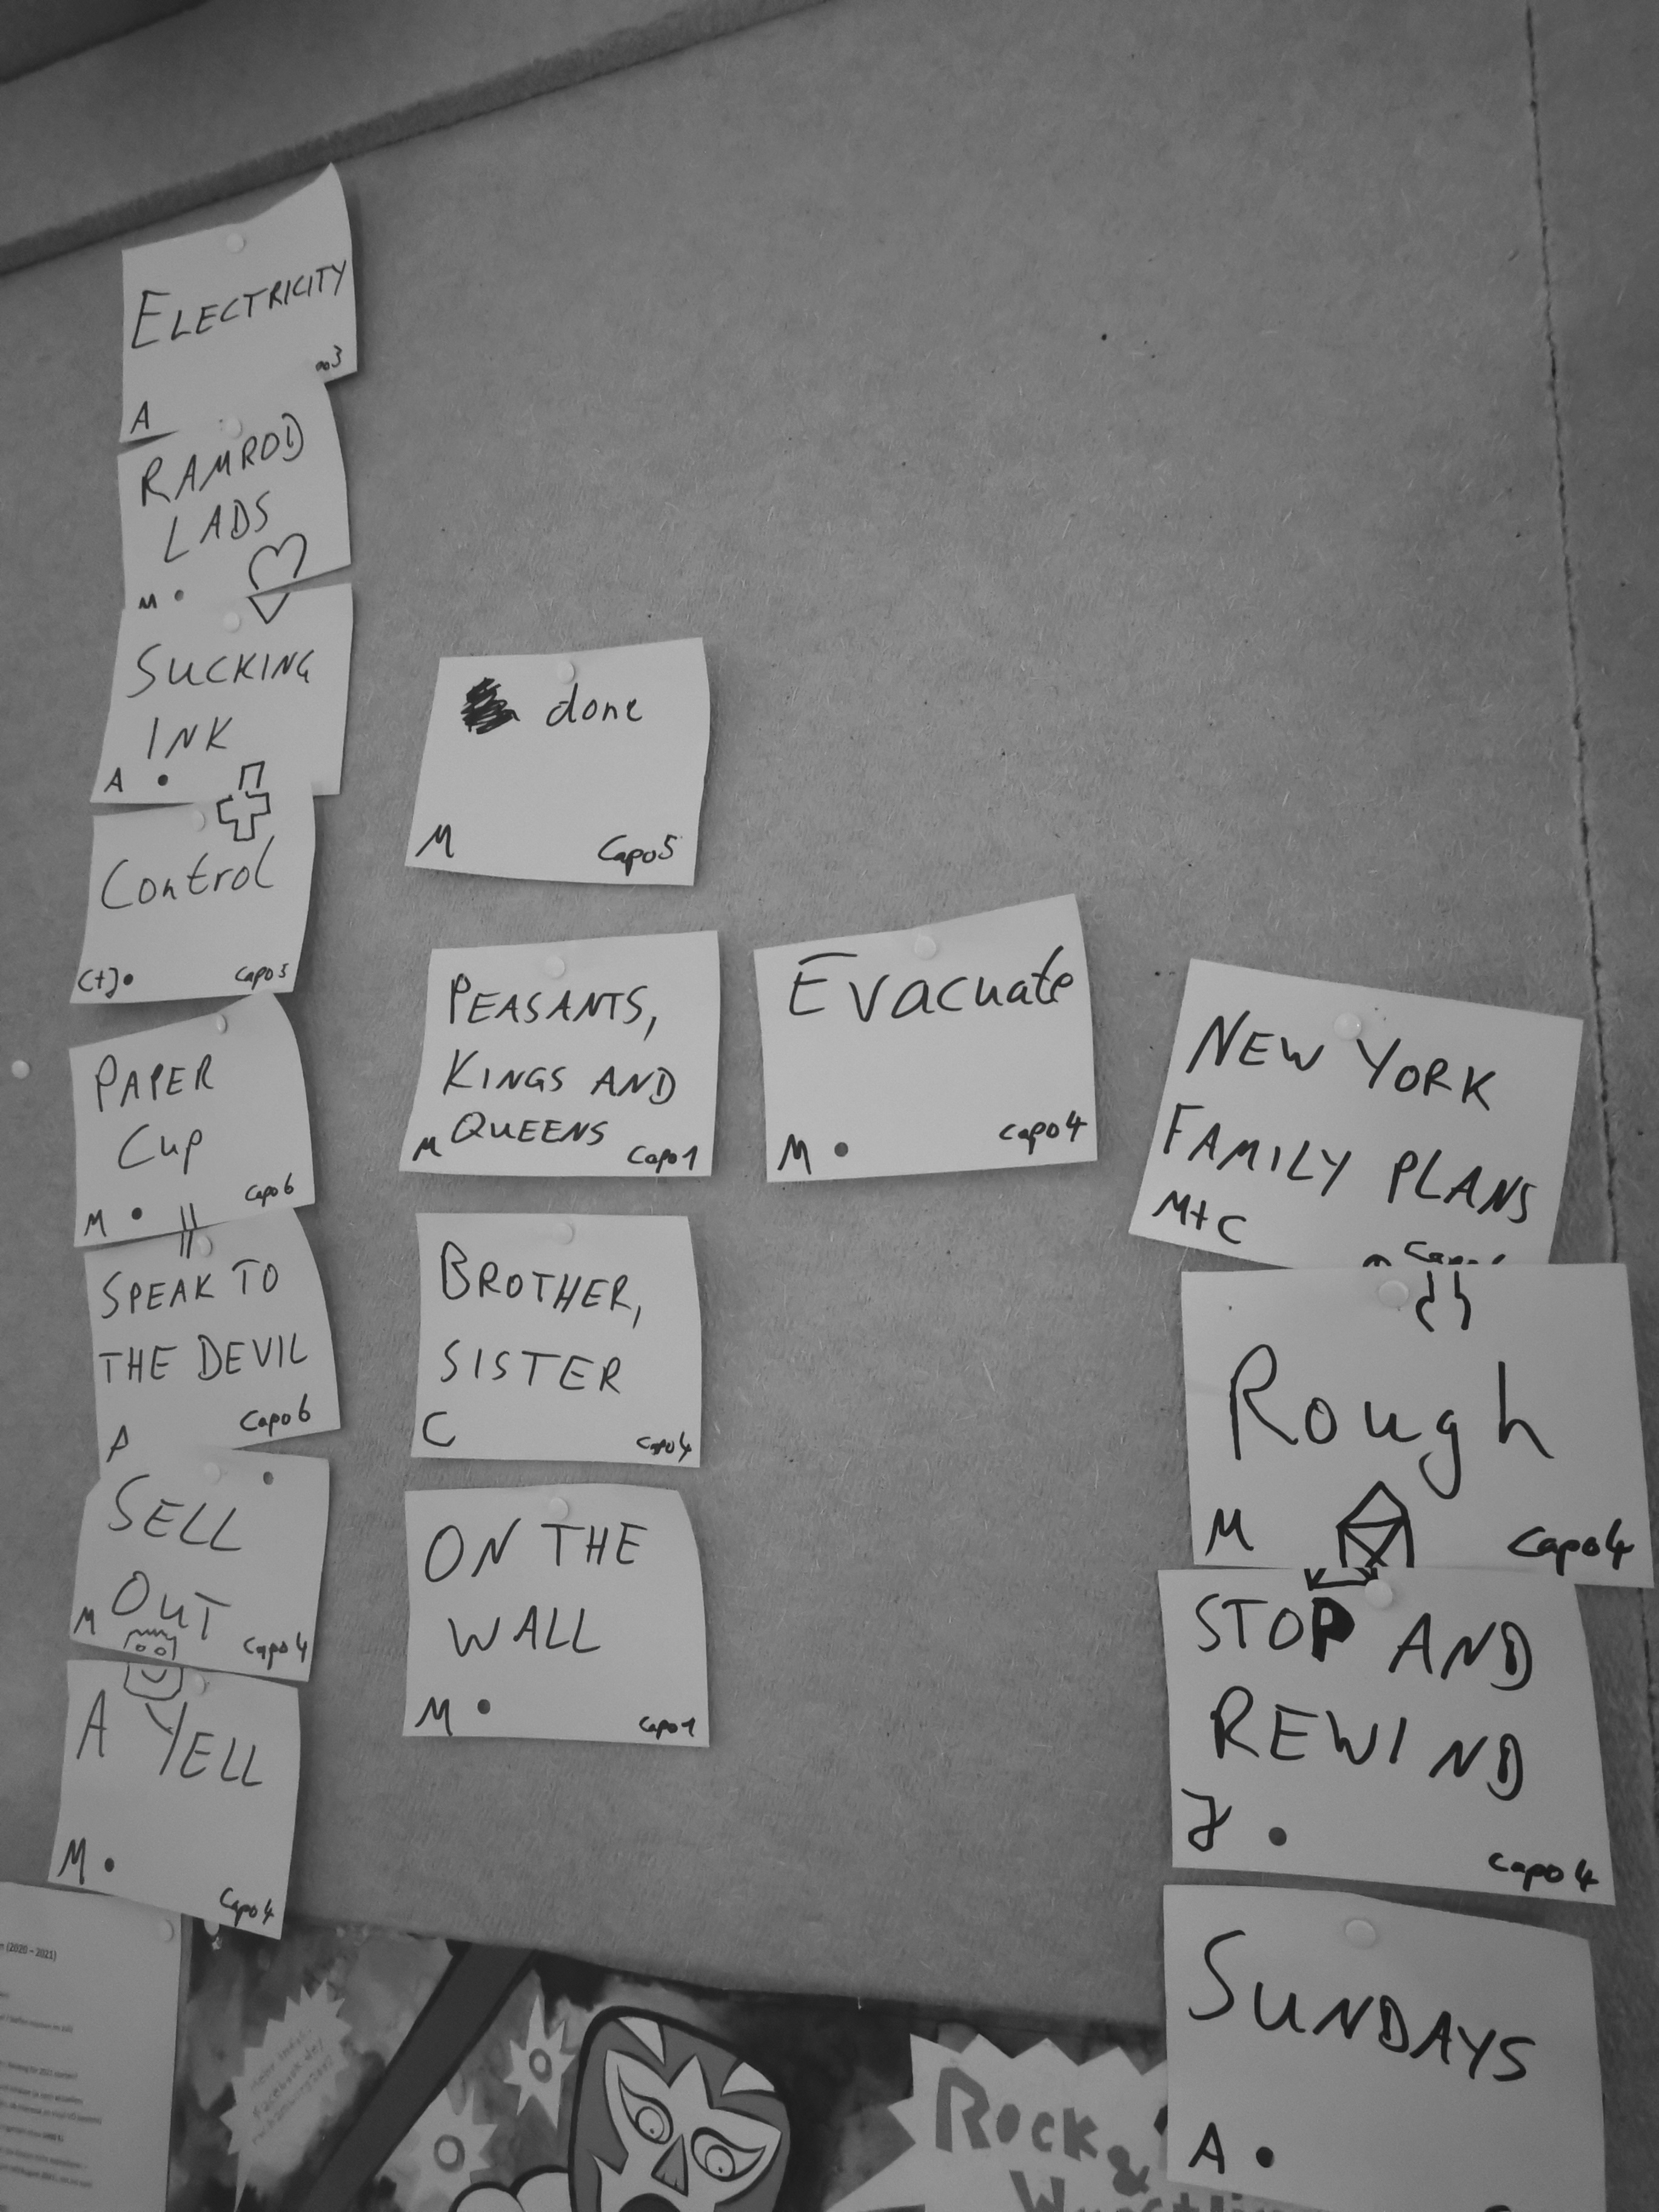 ELECTRICITY
A
RAMROD
LADS
M
SUCKING
INK
A
Control
C+J
PAPER
CUP
M Capo 6
SPEAK TO
THE DEVIL
A Capo 6
SELL
OUT
M Capo 4
A YELL
M
Capo 4
done
M Capo 5
PEASANTS,
KINGS AND
QUEENS
M Capo 1
BROTHER,
SISTER
C Capo 4
ON THE
WALL
M Capo 1
Evacuate
M Capo 4
NEW YORK
FAMILY PLANS
M+C
Rough
M Capo 4
STOP AND
REWIND
J Capo 4
SUNDAYS
A
(2020 – 2021)
ROCK
&